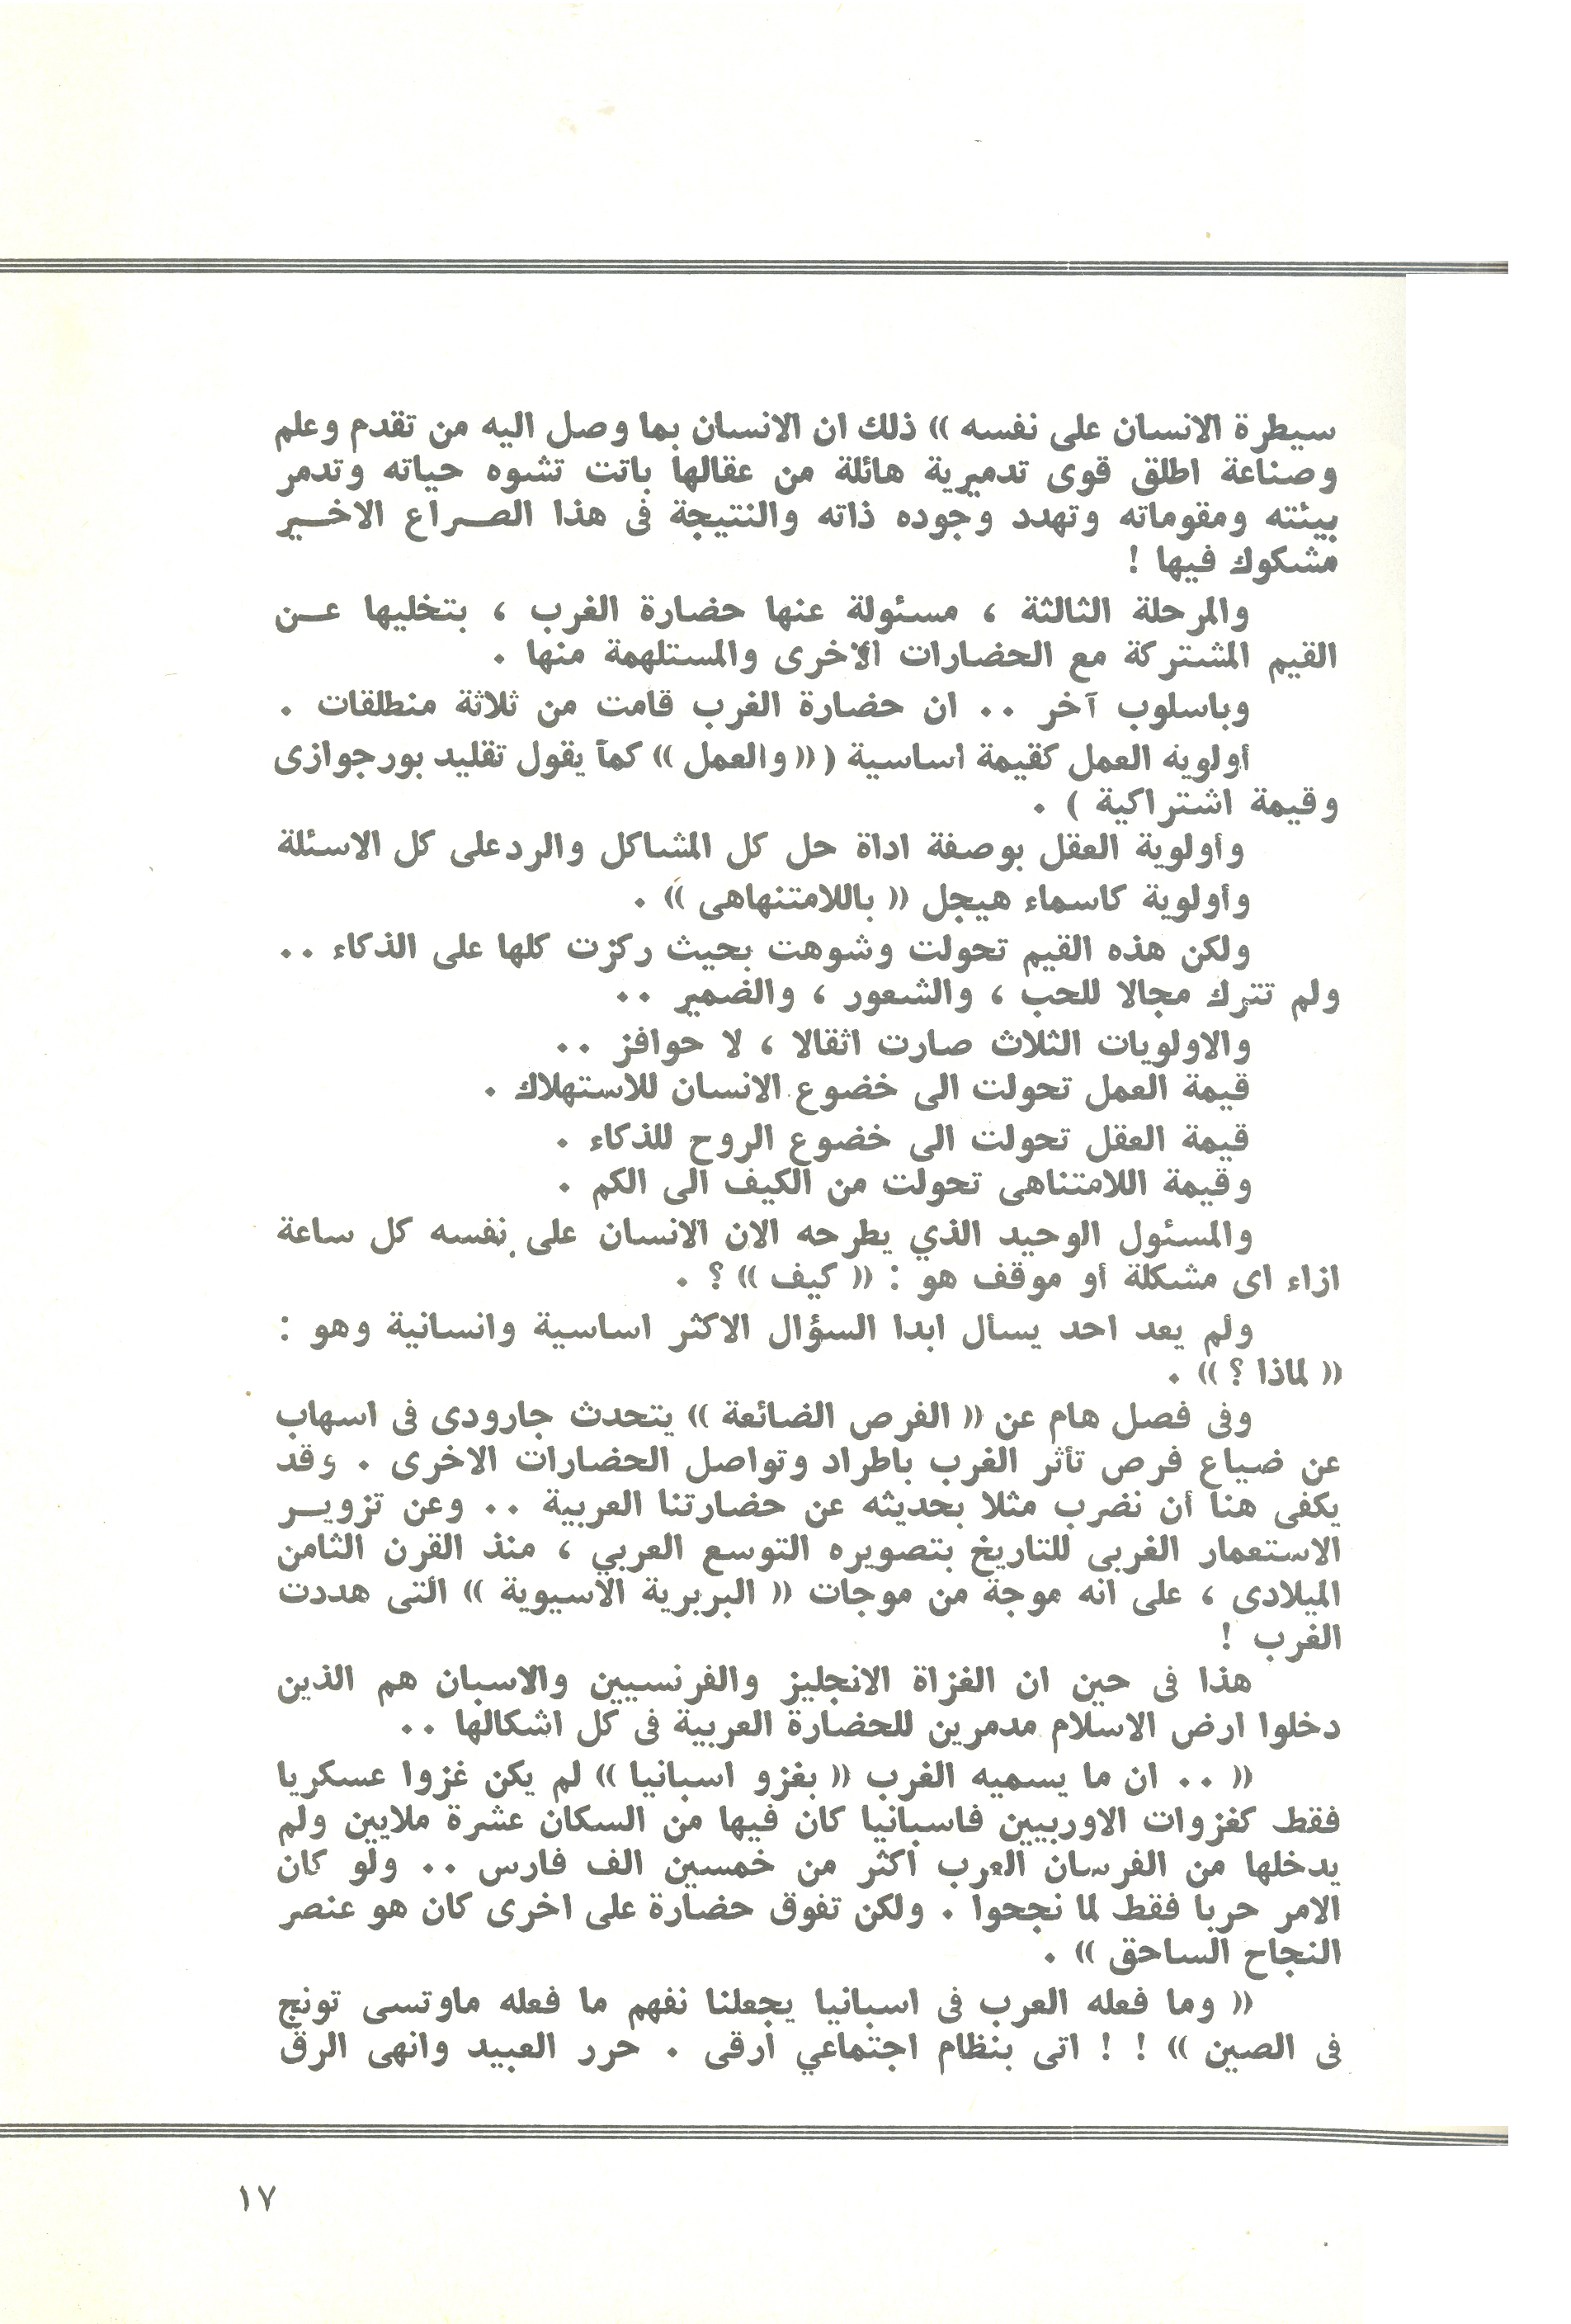 سيطرة الانسان على نفسه )) ذلك ان الانسان بما وصل اليه من تقدم وعلم
وصناعة اطلق قوى تدميرية هائلة من عقالها باتت تشوه حياته وتدمر
بيئته ومقوماته وتهدد وجوده ذاته والنتيجة فى هذا الصراع الاخير
مشكوك فيها !
والمرحلة الثالثة ، مسئولة عنها حضارة الغرب ، بتخليها عن
القيم المشتركة مع الحضارات الاخرى والمستلهمة منها .
وباسلوب آخر .. ان حضارة الغرب قامت من ثلاثة منطلقات .
أولويه العمل كقيمة اساسية ( (( والعمل )) كما يقول تقليد بورجوازى
وقيمة اشتراكية ) .
وأولوية العقل بوصفة اداة حل كل المشاكل والرد على كل الاسئلة
وأولوية كاسماء هيجل (( باللامتنهاهى )) .
ولكن هذه القيم تحولت وشوهت بحيث ركزت كلها على الذكاء ..
ولم تترك مجالا للحب ، والشعور ، والضمير ..
والاولويات الثلاث صارت اثقالا ، لا حوافز ..
قيمة العمل تحولت الى خضوع الانسان للاستهلاك .
قيمة العقل تحولت الى خضوع الروح للذكاء .
وقيمة اللامتناهى تحولت من الكيف الى الكم .
والمسئول الوحيد الذي يطرحه الان الانسان على نفسه كل ساعة
ازاء اى مشكلة أو موقف هو : (( كيف )) ؟ .
ولم يعد احد يسأل ابدا السؤال الاكثر اساسية وانسانية وهو :
(( لماذا ؟ )) .
وفى فصل هام عن (( الفرص الضائعة )) يتحدث جارودى فى اسهاب
عن ضياع فرص تأثر الغرب باطراد وتواصل الحضارات الاخرى . وقد
يكفى هنا أن نضرب مثلا بحديثه عن حضارتنا العربية .. وعن تزوير
الاستعمار الغربى للتاريخ بتصويره التوسع العربي ، منذ القرن الثامن
الميلادى ، على انه موجة من موجات (( البربرية الاسيوية )) التى هددت
الغرب !
هذا فى حين ان الغزاة الانجليز والفرنسيين والاسبان هم الذين
دخلوا ارض الاسلام مدمرين للحضارة العربية فى كل اشكالها ..
(( .. ان ما يسميه الغرب (( بغزو اسبانيا )) لم يكن غزوا عسكريا
فقط كغزوات الاوربيين فاسبانيا كان فيها من السكان عشرة ملايين ولم
يدخلها من الفرسان العرب اكثر من خمسين الف فارس .. ولو كان
الامر حربا فقط لما نجحوا . ولكن تفوق حضارة على اخرى كان هو عنصر
النجاح الساحق )) .
(( وما فعله العرب فى اسبانيا يجعلنا نفهم ما فعله ماوتسى تونج
فى الصين )) ! ! اتى بنظام اجتماعي أرقى . حرر العبيد وانهى الرق
١٧